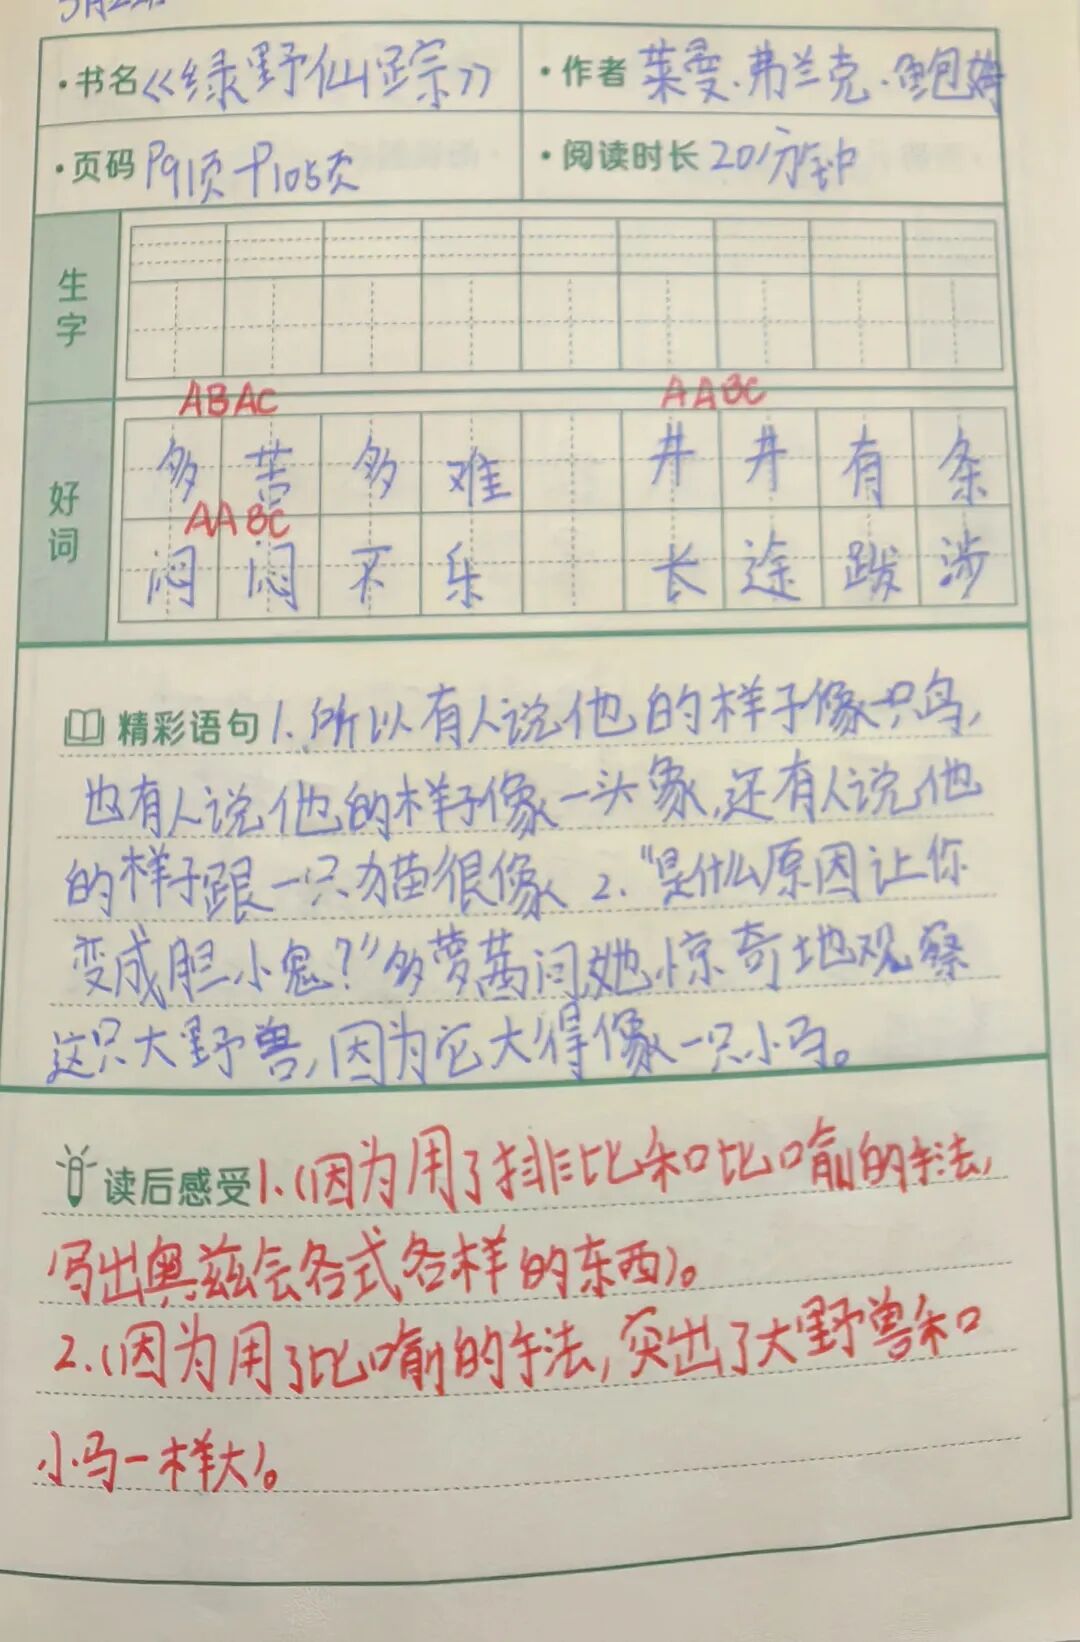 ·书名《绿野仙踪》 ·作者 莱曼·弗兰克·鲍姆
·页码 P91页-P105页 ·阅读时长 20分钟
生字
ABAC AABC
多苦多难 井井有条
AABC
好词
闷闷不乐 长途跋涉
精彩语句 1.所以有人说他的样子像一只鸟,
也有人说他的样子像一头象,还有人说他
的样子跟一只猫很像 2.“是什么原因让你
变成胆小鬼?”多萝茜问,她惊奇地观察
这只大野兽,因为它大得像一只小马。
读后感受 1.(因为用了排比和比喻的手法,
写出奥兹会各式各样的东西)。
2.(因为用了比喻的手法,突出了大野兽和
小马一样大)。